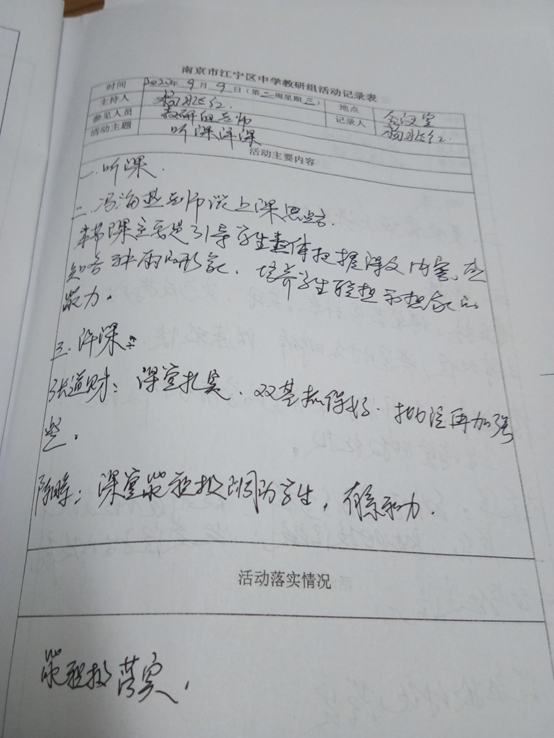 南京市江宁区中学教研组活动记录表
时间 2020年9月9日(第二周星期三) 地点 会议室
主持人 杨 记录人 杨
参见人员 教研组老师
活动主题 听课评课
活动主要内容
一.听课.
二.冯海燕老师说上课思路.
本节课主要是引导学生整体把握课文内容,感
知各种雨的形象.培养学生联想和想象的
能力.
三.评课:
张道财:课堂扎实.双基抓得好.板书再加强
些.
陈晔:课堂能积极调动学生,有亲和力.
活动落实情况
能积极落实.